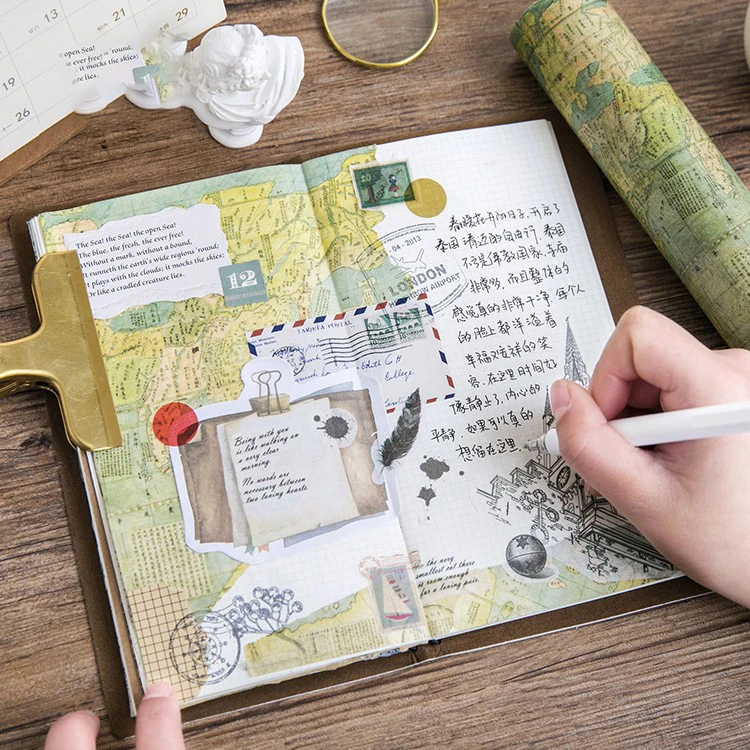 13
21
22
29
19
26
open Sea!
ever free!
'round;
it mocks the skies;
re lies.
The Sea! the Sea! the open Sea!
The blue, the fresh, the ever free!
Without a mark, without a bound,
It runneth the earth's wide regions 'round;
It plays with the clouds; it mocks the skies;
Or like a cradled creature lies.
12
TARJETA POSTAL
College
Being with you
is like walking on
a very clear
morning
No words are
necessary between
two loving hearts.
04 - 2013
LONDON
HEATHROW AIRPORT
春暖花开的日子,开启了
泰国清迈的自由行,泰国
不亏是佛教国家,寺庙
非常多,而且整体的
感觉真的非常干净,每个人
的脸上都洋溢着
幸福又安祥的笑
容,在这里时间好
像静止了,内心的
平静,如果可以真的
想留在这里.
the very
smallest cot there
is room enough
for a loving pair.